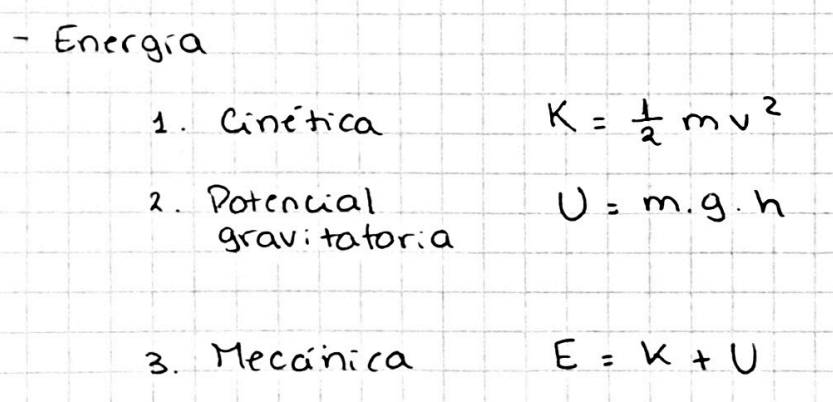 - Energía
1. Cinética K = 1/2 m v²
2. Potencial U = m.g.h
gravitatoria
3. Mecánica E = K + U